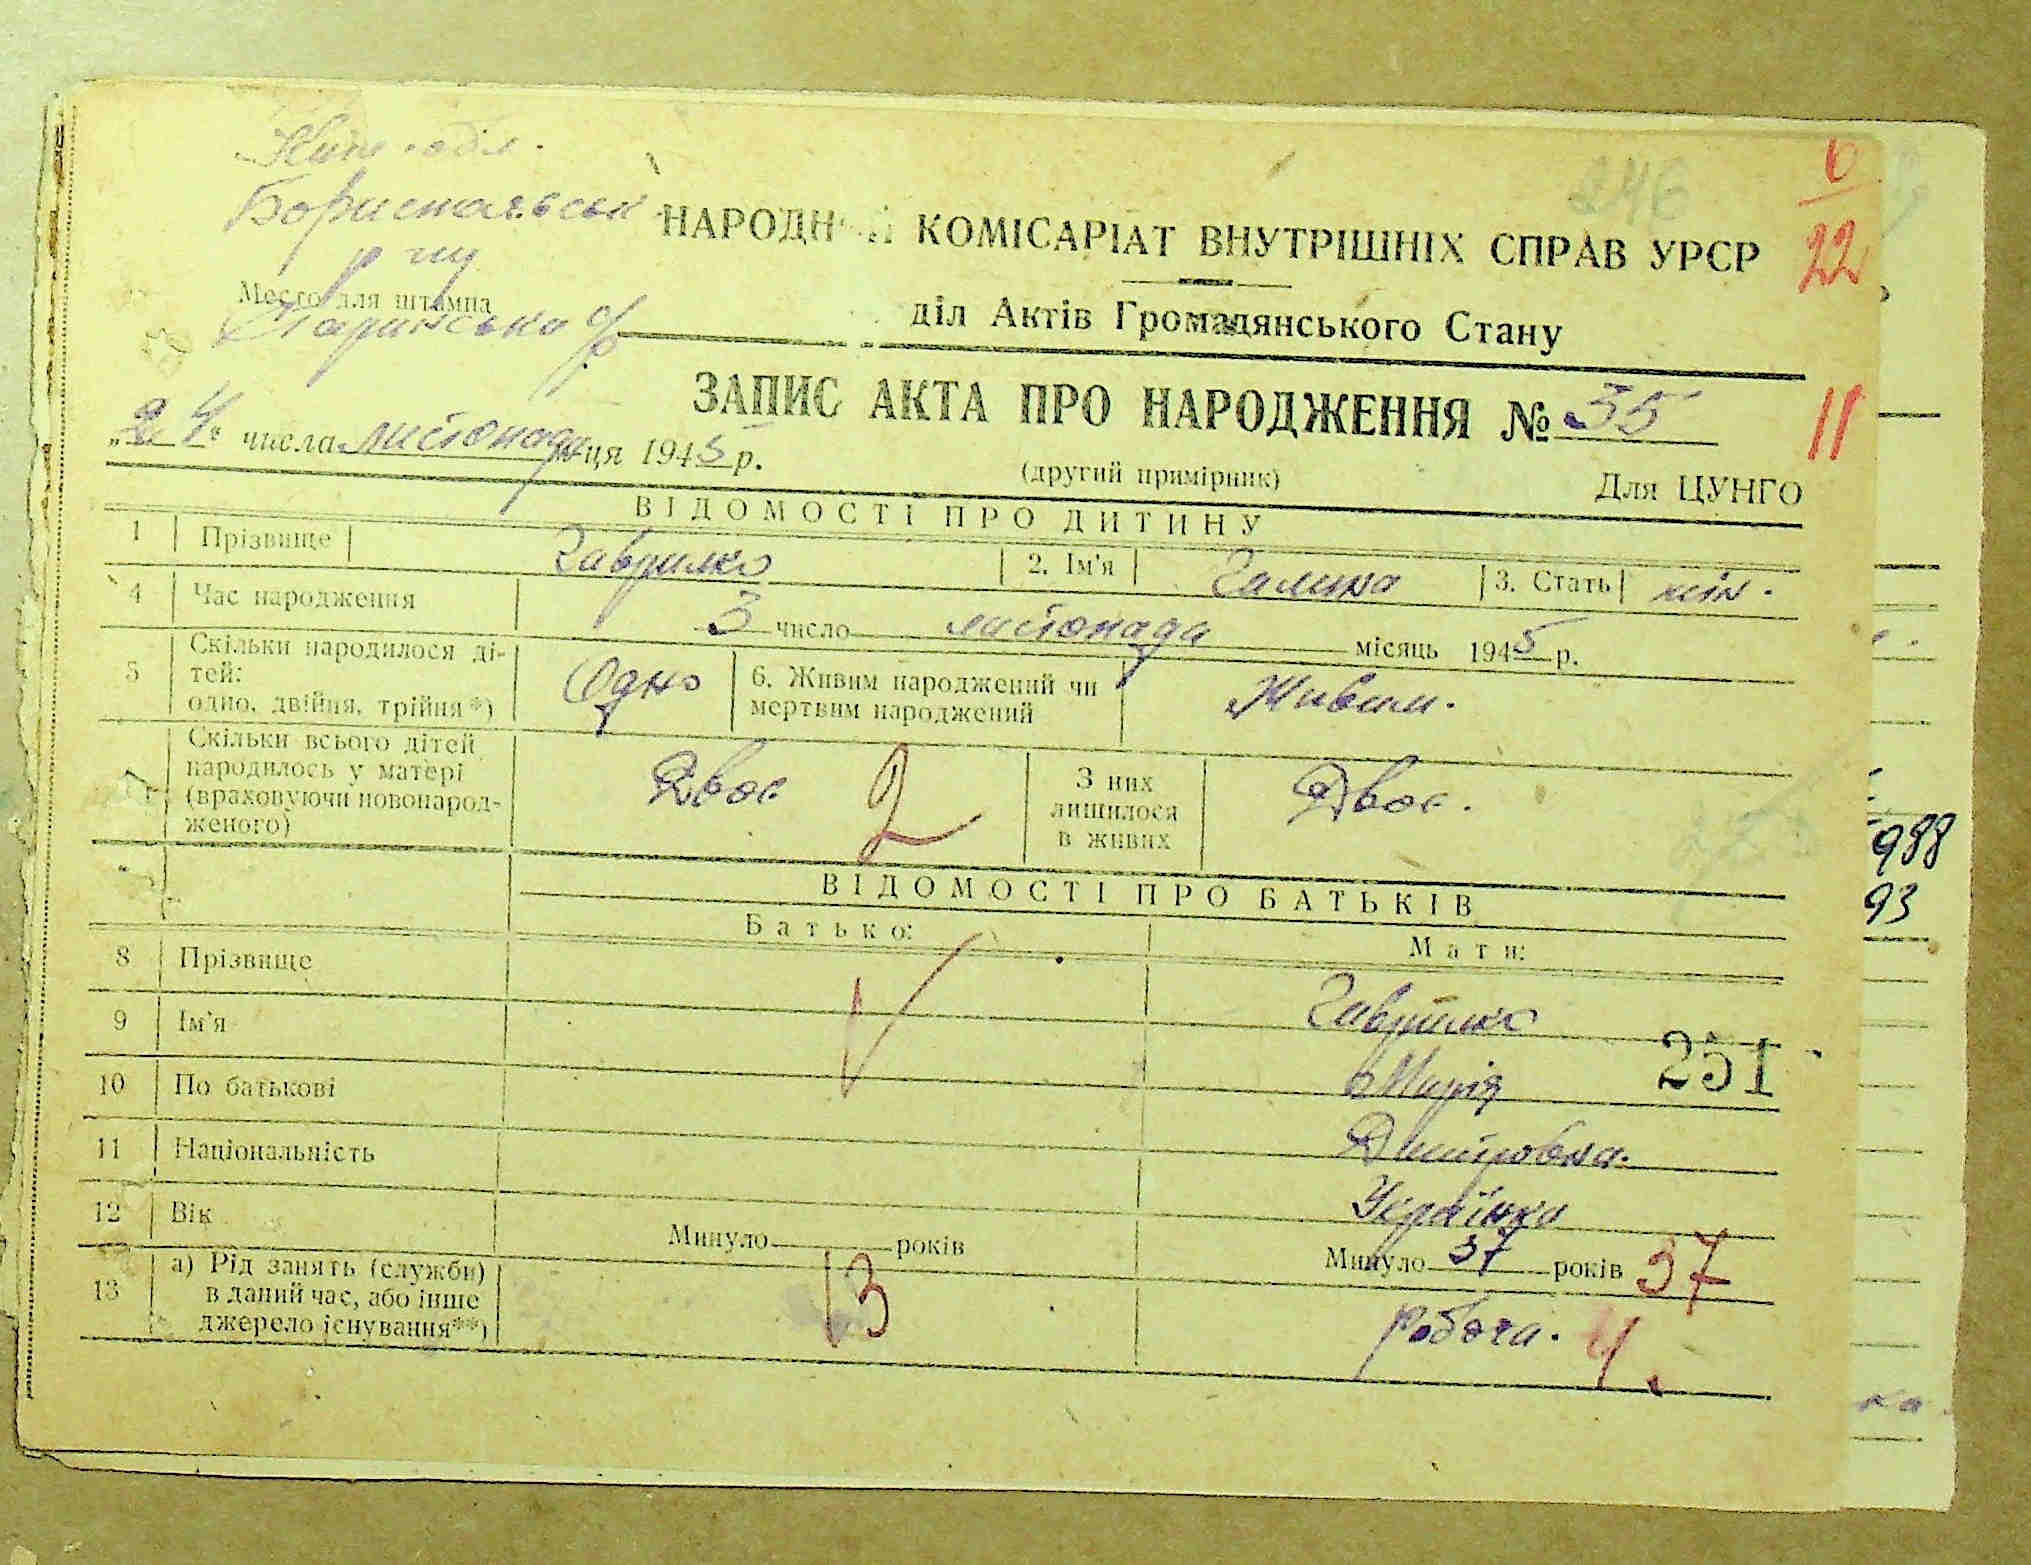 Київ. обл.
Бориспольськ
р-ну
Место для штампа
Старинська с/р
246
6
22
НАРОДНИЙ КОМІСАРІАТ ВНУТРІШНІХ СПРАВ УРСР
діл Актів Громадянського Стану
ЗАПИС АКТА ПРО НАРОДЖЕННЯ № 35
11
„24“ числа листопада ця 1945 р.
(другий примірник)
Для ЦУНГО
ВІДОМОСТІ ПРО ДИТИНУ
1 Прізвище Гаврилко 2. Ім'я Галина 3. Стать жін.
4 Час народження 3 число листопада місяць 1945 р.
5 Скільки народилося ді-
тей:
одно, двійня, трійня*) Одно
6. Живим народжений чи
мертвим народжений Живим.
7 Скільки всього дітей
народилось у матері
(враховуючи новонарод-
женого) Двоє 2
З них
лишилося
в живих Двоє.
988
93
ВІДОМОСТІ ПРО БАТЬКІВ
Батько: Мати:
8 Прізвище Гаврилко
9 Ім'я Марія
251
10 По батькові Дмитровна.
11 Національність Українка
12 Вік Минуло років Минуло 37 років 37
13 а) Рід занять (служби)
в даний час, або інше
джерело існування**) 13 робоча. 4.
ка.